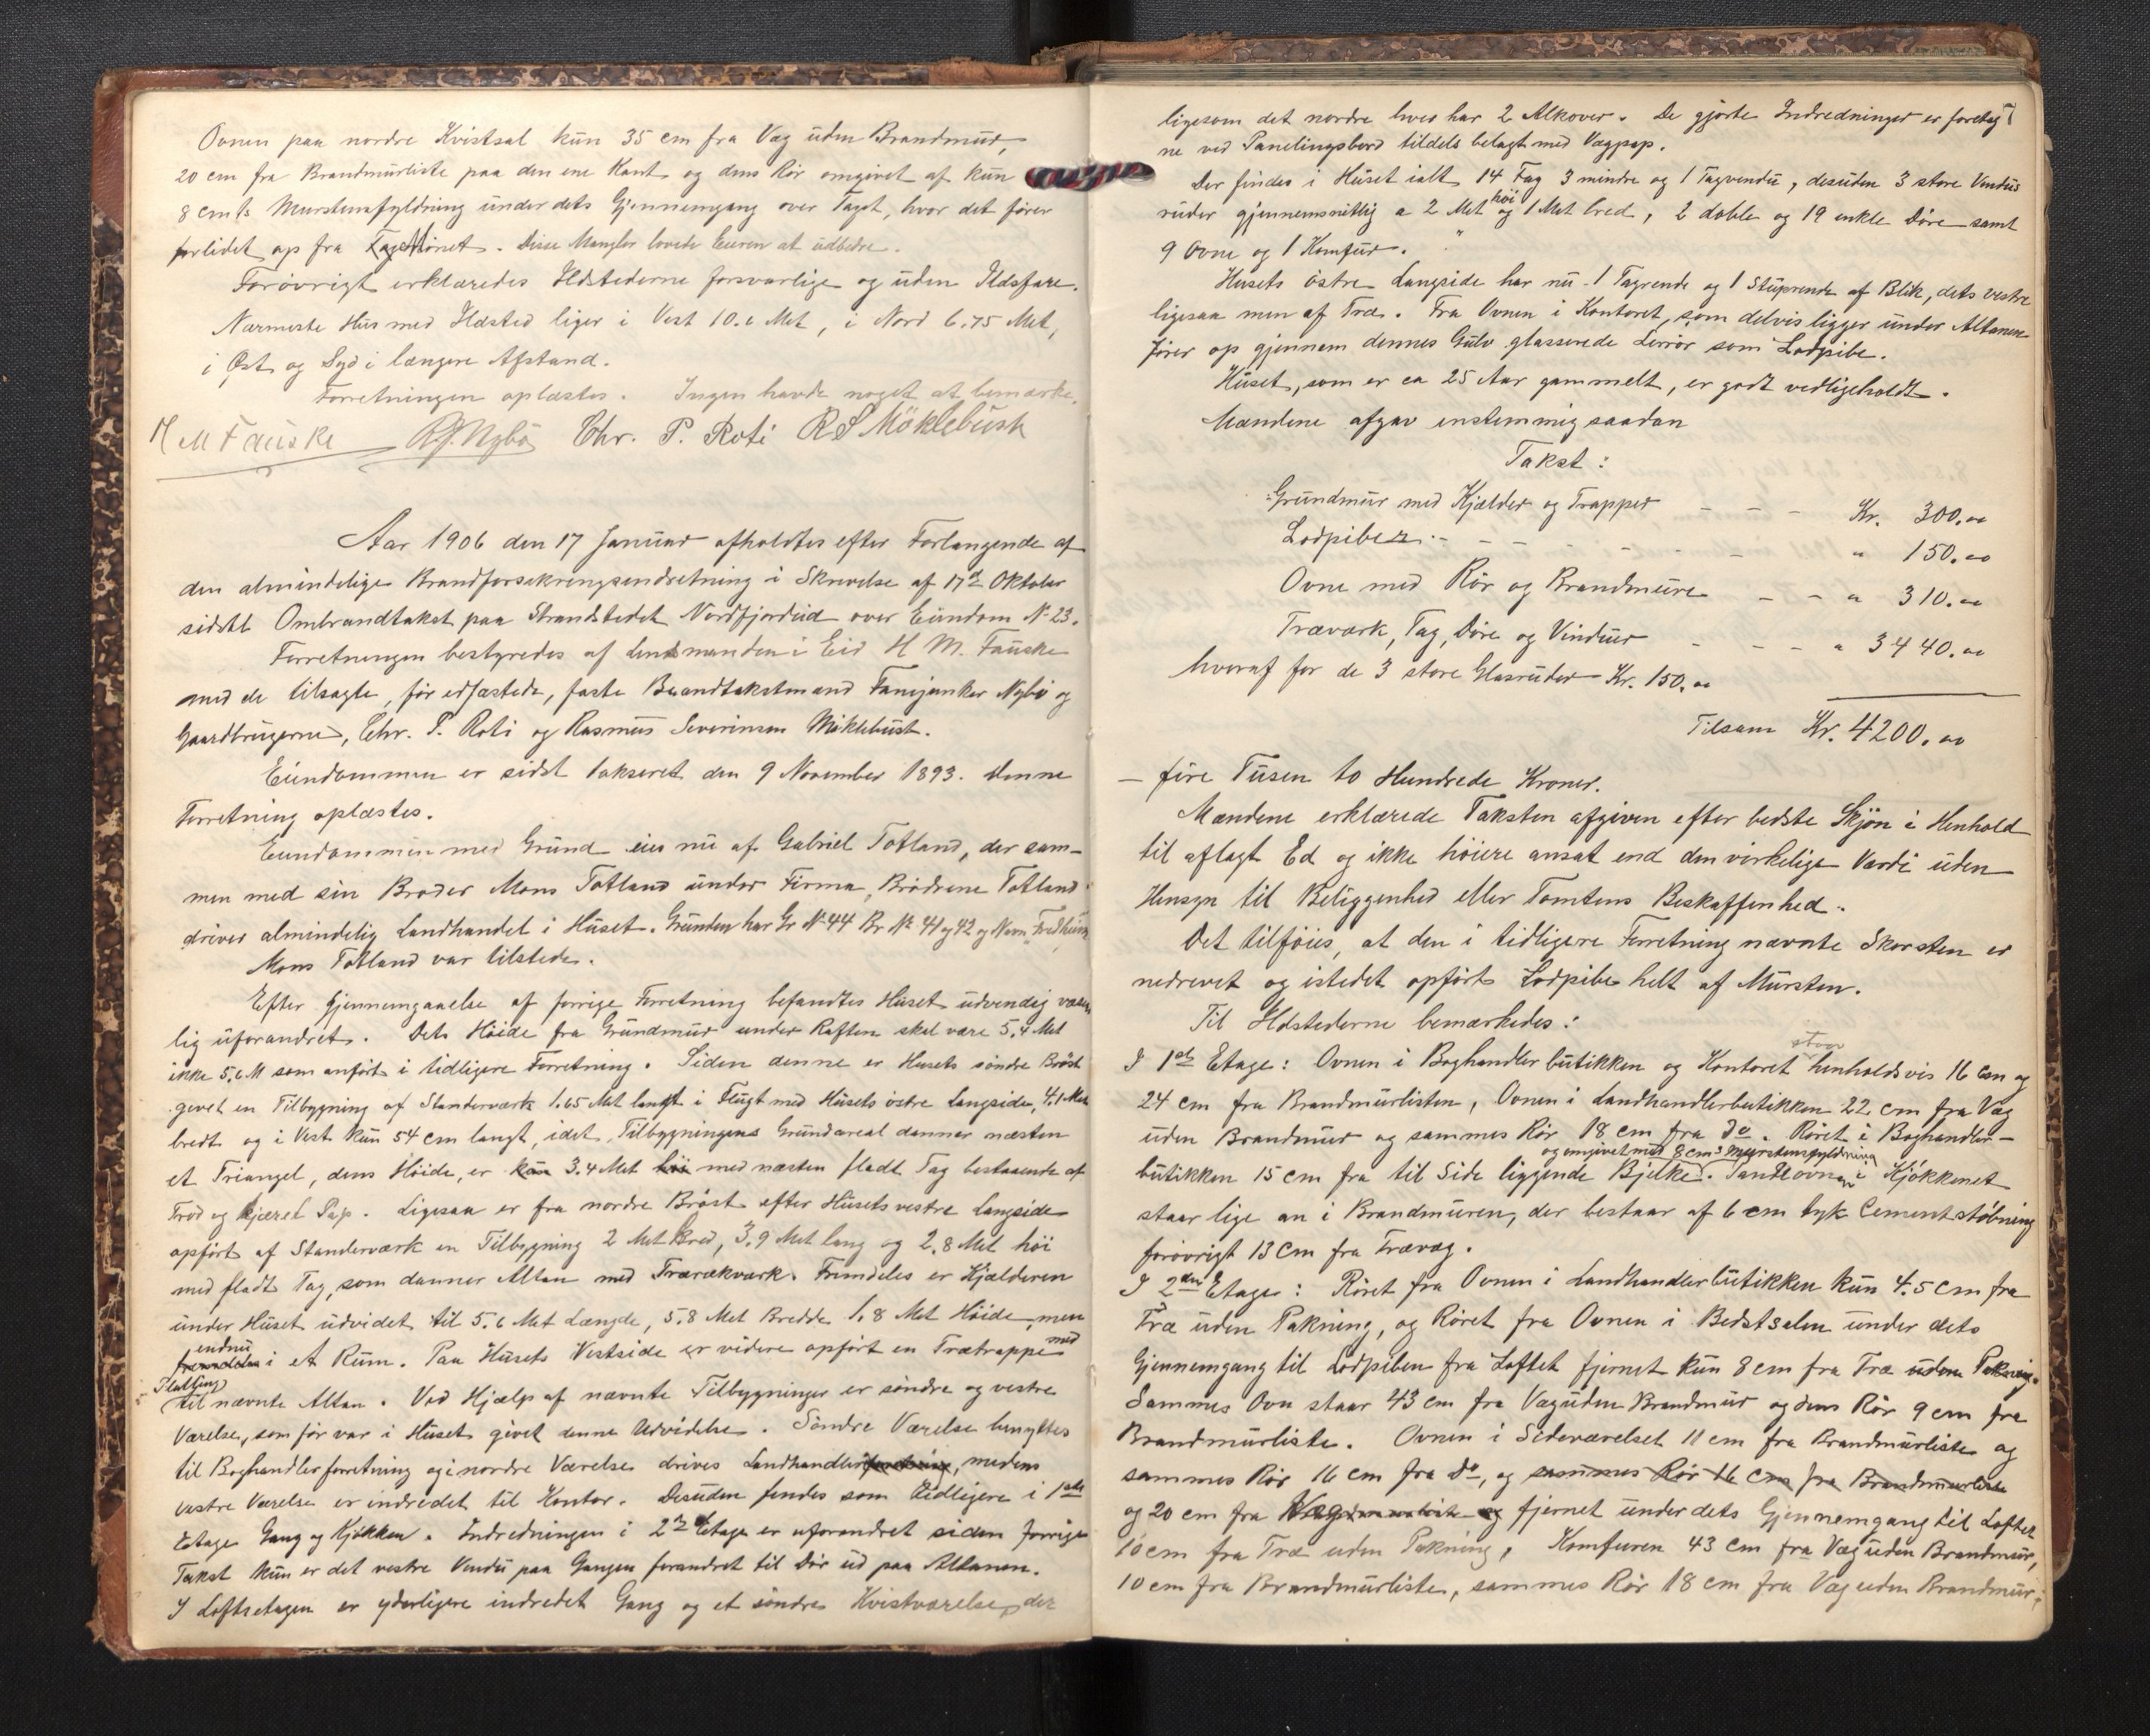 Ovnen paa nordre Kvistsal kun 35 cm fra Væg uden Brandmur,
20 cm fra Brandmurliste paa den ene Kant og dens Rör omgivet af kun
8 cm's Murstensfyldning under dets Gjennemgang over Taget, hvor det fører
forlidet op fra Mönet. Disse Mangler lovede Eieren at udbedre.
Forövrigt erklæredes Ildstederne forsvarlige og uden Ildsfare.
Nærmeste Hus med Ildsted liger i Vest 10.6 Met, i Nord 6.75 Met,
i Øst og Syd i længere Afstand.
Forretningen oplæstes. Ingen havde noget at bemærke.
H M Fauske RJ. Nybö Chr. P. Roti R S Möklebust
Aar 1906 den 17 Januar afholdtes efter Forlangende af
den almindelige Brandforsikringsindretning i Skrivelse af 17de Oktober
sidstl Ombrandtakst paa Strandstedet Nordfjordeid over Eiendom No 23.
Forretningen bestyredes af Lensmanden i Eid H M. Fauske
med de tilsagte, för edfæstede, faste Brandtakstmænd Fanejunker Nybö og
Gaardbrugerne, Chr. P. Roti og Rasmus Severinsen Möklebust.
Eiendommen er sidst takseret den 9 November 1893. Denne
Forretning oplæstes.
Eiendommen med Grund eies nu af Gabriel Totland, der sam-
men med sin Broder Mons Totland under Firma "Brödrene Totland"
driver almindelig Landhandel i Huset. Grunden har Gr No 44 Br No 41 og 42 og Navn Fredheim
Mons Totland var tilstede.
Efter Gjennemgaaelse af forrige Forretning befandtes Huset udvendig væsen
lig uforandret. Dets Höide fra Grundmur under Raften skal være 5,4 Met
ikke 5,6 M som anfört i tidligere Forretning. Siden denne er Husets söndre Bröst
givet en Tilbygning af Standerværk 1.65 Met langt i Flugt med Husets östre Langside, 4,1 Met
bredt og i Vest kun 54 cm langt, idet Tilbygningens Grundareal danner næsten
et Triangel, dens Höide er 3.4 Met med næsten fladt Tag bestaaende af
Tro og tjæret Pap. Ligesaa er fra nordre Bröst efter Husets vestre Langside
opfört af Standerværk en Tilbygning 2 Met bred, 3.9 Met lang og 2.8 Met höi
med fladt Tag, som danner Altan med Trærækværk. Fremdeles er Kjælderen
under Huset udvidet til 5.6 Met Længde, 5.8 Met Bredde 1.8 Met Höide, men
endnu i et Rum. Paa Husets Vestside er videre opfört en Trætrappe med
Platting
til nævnte Altan. Ved Hjælp af nævnte Tilbygninger er söndre og vestre
Værelse, som för var i Huset givet denne Udvidelse. Söndre Værelse benyttes
til Boghandlerforretning og i nordre Værelse drives Landhandleri, medens
vestre Værelse er indredet til Kontor. Desuden findes som tidligere i 1ste
Etage Gang og Kjökken. Indredningen i 2den Etage er uforandret siden forrige
Takst kun er det vestre Vindu paa Gangen forandret til Dör ud paa Altanen.
I Loftsetagen er yderligere indredet Gang og et söndre Kvistværelse, der
7
ligesom det nordre hver har 2 Alkover. De gjorte Indredninger er foretag
ne ved Panelingsbord tildels belagt med Vægpap.
Der findes i Huset ialt 14 Fag 3 mindre og 1 Tagvendu, desuden 3 store Vindus
ruder gjennemsnitlig a 2 Met höi og 1 Met bred, 2 doble og 19 enkle Döre samt
9 Ovne og 1 Komfur.
Husets östre Langside har nu 1 Tagrende og 1 Stuprende af Blik, dets vestre
ligesaa men af Træ. Fra Ovnen i Kontoret, som delvis ligger under Altanen
förer op gjennem dennes Gulv glasserede Lerrör som Lodpibe.
Huset, som er ca 25 Aar gammelt, er godt vedligeholdt.
Mændene afgav enstemmig saadan
Takst:
Grundmur med Kjælder og Trapper - - - Kr. 300.00
Lodpiber - - - - - " 150.00
Ovne med Rör og Brandmure - - " 310.00
Træværk, Tag, Döre og Vinduer - - - " 3440.00
hvoraf for de 3 store Glasruder Kr. 150.00
Tilsam Kr. 4200.00
– fire Tusen to Hundrede Kroner.
Mændene erklærede Taksten afgiven efter bedste Skjön i Henhold
til aflagt Ed og ikke höiere ansat end den virkelige Værdi uden
Hensyn til Beliggenhed eller Tomtens Beskaffenhed.
Det tilföies, at den i tidligere Forretning nævnte Skorsten er
nedrevet og istedet opfört Lodpibe helt af Mursten.
Til Ildstederne bemærkedes:
I 1ste Etage: Ovnen i Boghandlerbutikken og Kontoret staar henholdsvis 16 cm og
24 cm fra Brandmurlisten, Ovnen i Landhandlerbutikken 22 cm fra Væg
uden Brandmur og sammes Rör 18 cm fra do. Röret i Boghandler-
butikken 15 cm fra til Side liggende Bjelke og omgivet med 8 cm's Murstensfyldning. i Kjökkenet
staar lige an i Brandmuren, der bestaar af 6 cm tyk Cementstöbning
forövrigt 13 cm fra Trævæg.
I 2den Etage: Röret fra Ovnen i Landhandlerbutikken kun 4.5 cm fra
Træ uden Pakning, og Röret fra Ovnen i Bedstsalen under dets
Gjennemgang til Lodpiben fra Loftet fjernet kun 8 cm fra Træ uden Pakning.
Sammes Ovn staar 43 cm fra Væg uden Brandmur og dens Rör 9 cm fra
Brandmurliste. Ovnen i Sideværelset 11 cm fra Brandmurliste og
sammes Rör 16 cm fra do, og sammes Rör 16 cm fra Brandmurliste
og 20 cm fra Væg og fjernet under dets Gjennemgang til Loftet
10 cm fra Træ uden Pakning, Komfuren 43 cm fra Væg uden Brandmur,
10 cm fra Brandmurliste, sammes Rör 18 cm fra Væg uden Brandmur;